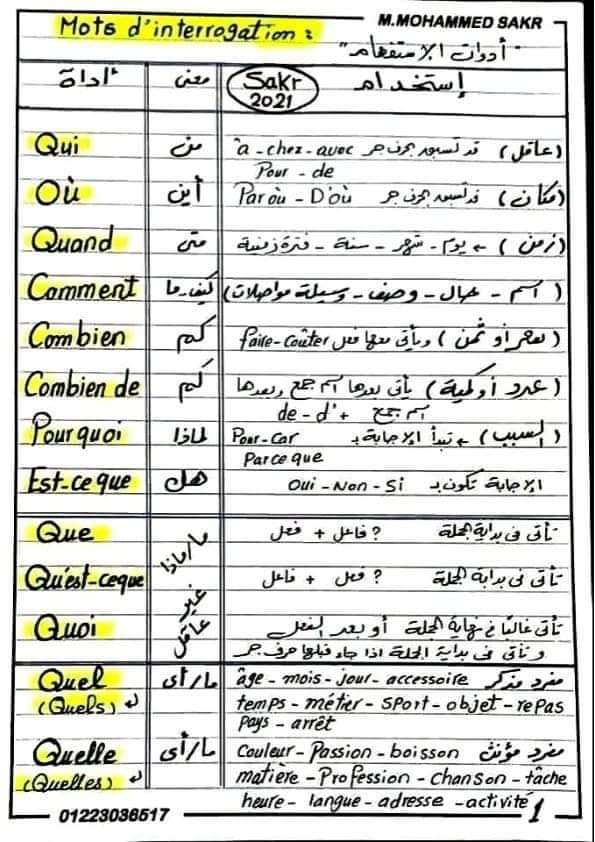 M.MOHAMMED SAKR
Mots d'interrogation :
"أدوات الاستفهام"
أداة معنى Sakr 2021 إستخدام
Qui من (عاقل) قد تسبق بحرف جر à - chez - avec
Pour - de
Où أين (مكان) قد تسبق بحرف جر Par où - D'où
Quand متى (زمن) ← يوم - شهر - سنة - فترة زمنية
Comment كيف - ما (اسم - حال - وصف - وسيلة مواصلات)
Combien كم (سعر أو ثمن) ويأتى معها فعل faire - coûter
Combien de كم (عدد أو كمية) يأتى بعدها اسم جمع وبعدها
de - d' + اسم جمع
Pourquoi لماذا (السبب) ← تبدأ الإجابة بـ Pour - Car
Parce que
Est-ce que هل الإجابة تكون بـ Oui - Non - Si
Que ما/ماذا تأتى فى بداية الجملة ? فاعل + فعل
Qu'est-ceque غير عاقل تأتى فى بداية الجملة ? فعل + فاعل
Quoi تأتى غالبًا فى نهاية الجملة أو بعد الفعل
وتأتى فى بداية الجملة اذا جاء قبلها حرف جر
Quel ما/أى مفرد مذكر âge - mois - jour - accessoire
(Quels) temps - métier - sport - objet - repas
pays - arrêt
Quelle ما/أى مفرد مؤنث Couleur - Passion - boisson
(Quelles) matière - Profession - chanson - tâche
heure - langue - adresse - activité
01223036517
1